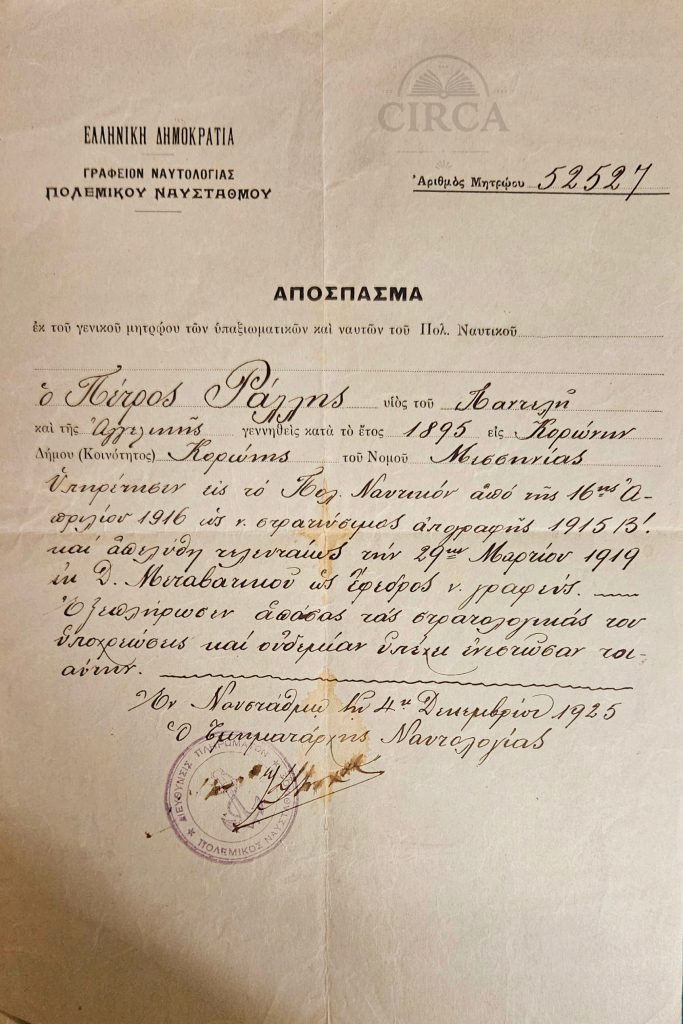 CIRCA
ΕΛΛΗΝΙΚΗ ΔΗΜΟΚΡΑΤΙΑ
ΓΡΑΦΕΙΟΝ ΝΑΥΤΟΛΟΓΙΑΣ
ΠΟΛΕΜΙΚΟΥ ΝΑΥΣΤΑΘΜΟΥ
Ἀριθμὸς Μητρῴου 52527
ΑΠΟΣΠΑΣΜΑ
ἐκ τοῦ γενικοῦ μητρῴου τῶν ὑπαξιωματικῶν καὶ ναυτῶν τοῦ Πολ. Ναυτικοῦ
ὁ Πέτρος Ράλλης υἱὸς τοῦ Παντελῆ
καὶ τῆς Ἀγγελικῆς γεννηθεὶς κατὰ τὸ ἔτος 1895 εἰς Κορώνην
Δήμου (Κοινότητος) Κορώνης τοῦ Νομοῦ Μεσσηνίας
Ὑπηρέτησεν εἰς τὸ Πολ. Ναυτικὸν ἀπὸ τῆς 16ης Ἀ-
πριλίου 1916 ὡς ν. στρατεύσιμος ἀπογραφῆς 1915 Β!
καὶ ἀπελύθη τελευταίως τὴν 29ην Μαρτίου 1919
ἐκ Δ. Μεταβατικοῦ ὡς Ἔφεδρος ν. γραφεύς.
Ἐξεπλήρωσεν ἁπάσας τὰς στρατολογικάς του
ὑποχρεώσεις καὶ οὐδεμίαν ὑπέχει ἐνεστῶσαν τοι-
αύτην.
Ἐν Ναυστάθμῳ τῇ 4ῃ Δεκεμβρίου 1925
Ὁ Τμηματάρχης Ναυτολογίας
ΔΙΕΥΘΥΝΣΙΣ ΠΛΗΡΩΜΑΤΩΝ
ΠΟΛΕΜΙΚΟΣ ΝΑΥΣΤΑΘΜΟΣ